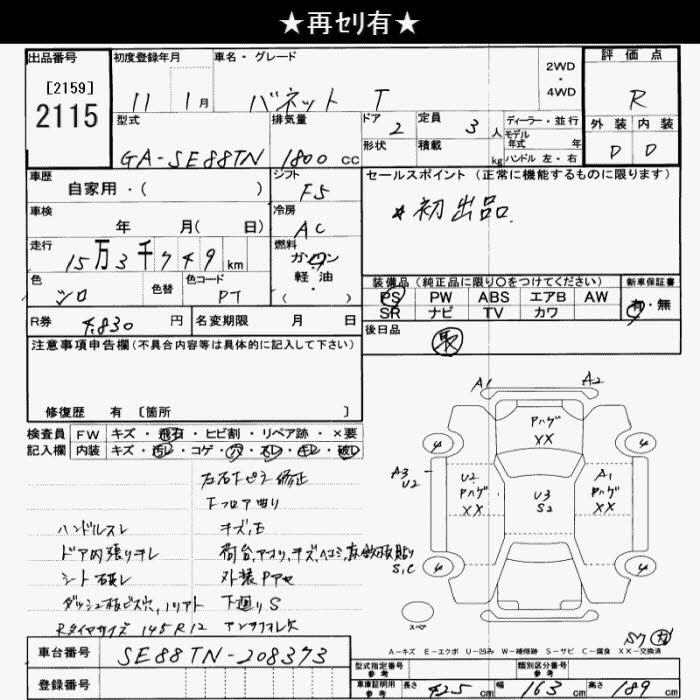 ★再セリ有★
出品番号 初度登録年月 車名・グレード 評価点
[2159]
2115
11 1月 バネット T 2WD・4WD R
型式 排気量 ドア 定員 ディーラー・並行 外装 内装
GA-SE88TN 1800cc 2 3人 モデル年式 年 D D
形状 積載 kg ハンドル 左・右
車歴 シフト セールスポイント (正常に機能するものに限ります)
自家用・( ) F5
*初出品.
車検 冷房
年 月( 日) AC
走行 燃料
15万3千749km ガソリン
軽・油
( )
色 色替 色コード
シロ PT
装備品 (純正品に限り○をつけてください) 新車保証書
PS PW ABS エアB AW 有・無
SR ナビ TV カワ
R券 円 名変期限 月 日
後日品 取
注意事項申告欄 (不具合内容等は具体的に記入して下さい)
修復歴 有 [箇所 ]
検査員 FW キズ・飛石・ヒビ割・リペア跡・×要
記入欄 内装 キズ・汚レ・コゲ・穴・スレ・キレ・破レ
ハンドルスレ キズ,モ
ドア内張りキレ
シート破レ 外装Pアセ
下廻りS
Rタイヤサイズ 145R12
A1 A2
Pハゲ
XX
A3
U2
U2
Pハゲ
XX
U3
S2
A1
Pハゲ
XX
S,C
4 4 4 4
スペア
A-キズ E-エクボ U-凹み W-補修跡 S-サビ C-腐食 XX-交換済
車台番号 SE88TN-208373
登録番号
型式指定番号 参考 類別区分番号 参考
車庫証明用 参考 長さ 425cm 幅 163cm 高さ 189cm